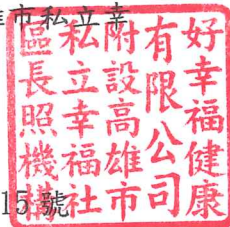 雄市私立幸
好幸福健康
有限公司
附設高雄市
私立幸福社
區長照機構
15號